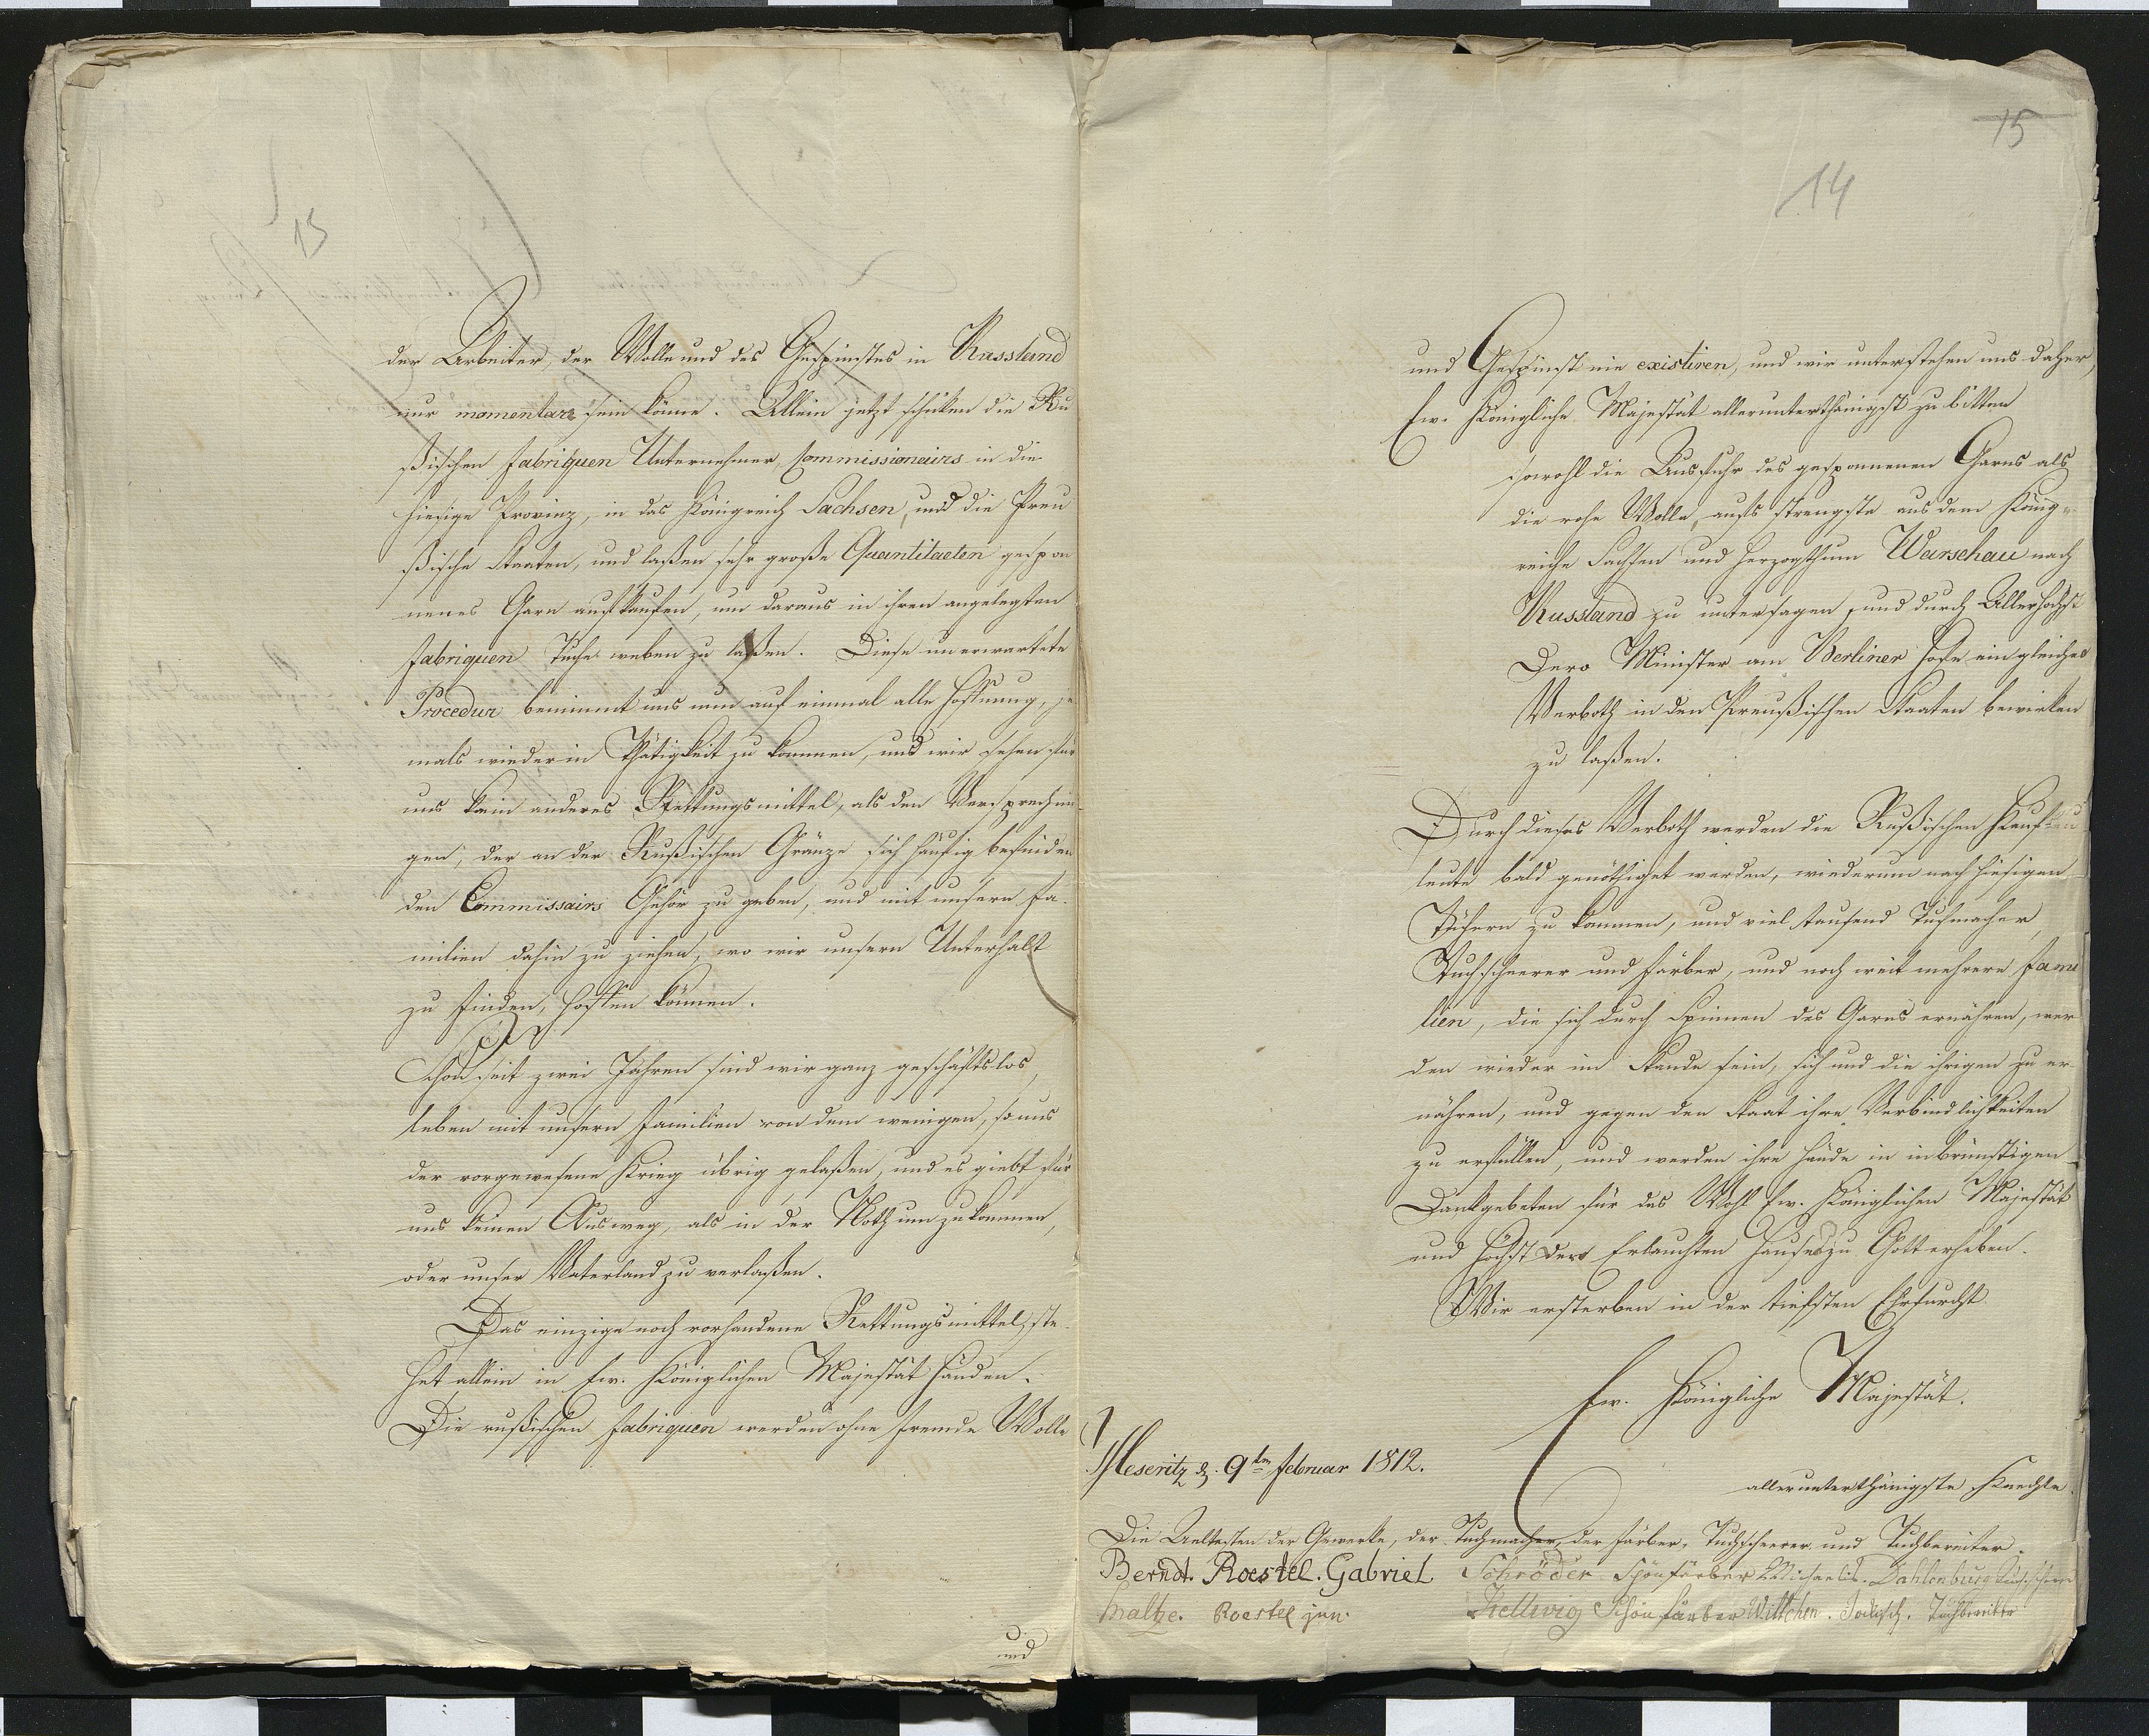 15
der Arbeiter, der Wolle und des Gespinstes in Russland
nur momentan sein könne. Allein jetzt schicken die Ru
ßischen Fabriquen Unternehmer, Commissionairs in die
hiesige Provinz, in das Königreich Sachsen, und die Preu
ßische Staaten, und laßen sehr große Quantitaeten gespon
nenes Garn aufkaufen, um daraus in ihren angelegten
Fabriquen Tuche weben zu laßen. Diese unerwartete
Procedur benimmt uns nun auf einmal alle Hoffnung, je
mals wieder in Thätigkeit zu kommen, und wir sehen für
uns kein anderes Rettungsmittel, als den Versprechun
gen, der an der Rußischen Gränze sich häufig befinden
den Commissairs Gehör zu geben, und mit unsern Fa
milien dahin zu ziehen, wo wir unsern Unterhalt
zu finden, hoffen können.
Schon seit zwei Jahren sind wir ganz geschäftslos,
leben mit unsern Familien von dem wenigen, so uns
der vorgewesene Krieg übrig gelaßen, und es giebt für
uns keinen Ausweg, als in der Noth umzukommen,
oder unser Vaterland zu verlaßen.
Das einzige noch vorhandene Rettungsmittel, ste
het allein in Ew. Königlichen Majestät Händen.
Die rußischen Fabriquen werden ohne fremde Wolle
und
15
14
und Gespinst nie existiren, und wir unterstehen uns daher,
Ew. Königliche Majestät allerunterthänigst zu bitten
sowohl die Ausfuhr des gesponnenen Garns als
die rohe Wolle, aufs strengste aus dem König-
reiche Sachsen und Herzogthum Warschau nach
Russland zu untersagen, und durch Allerhöchst
Dero Minister am Berliner Hofe ein gleiches
Verboth in den Preußischen Staaten bewirken
zu laßen.
Durch dieses Verboth werden die Rußischen Kauf
leute bald genöthiget werden, wiederum nach hiesigen
Tüchern zu kommen, und viel tausend Tuchmacher,
Tuchscheerer und Färber, und noch weit mehrere Fami
lien, die sich durch Spinnen des Garns ernähren, wer
den wieder im Stande sein, sich und die ihrigen zu er
nähren, und gegen den Staat ihre Verbindlichkeiten
zu erfüllen, und werden ihre Hände in inbrünstigen
Dankgebeten für das Wohl Ew. Königlichen Majestät
und Höchst Dero Erlauchten Hauses zu Gott erheben.
Wir ersterben in der tiefsten Ehrfurcht
Ew. Königliche Majestät.
Meseritz d. 9ten Februar 1812.
allerunterthänigste Knechte.
Die Aeltesten der Gewerke, der Tuchmacher, der Färber, Tuchscheerer und Tuchbereiter.
Berndt. Roestel. Gabriel Schröder Schönfärber Michaelis. Dahlenburg Tuchscheerer
Roestel jun. Hellwig Schönfärber Wittchen. Tuchbereiter